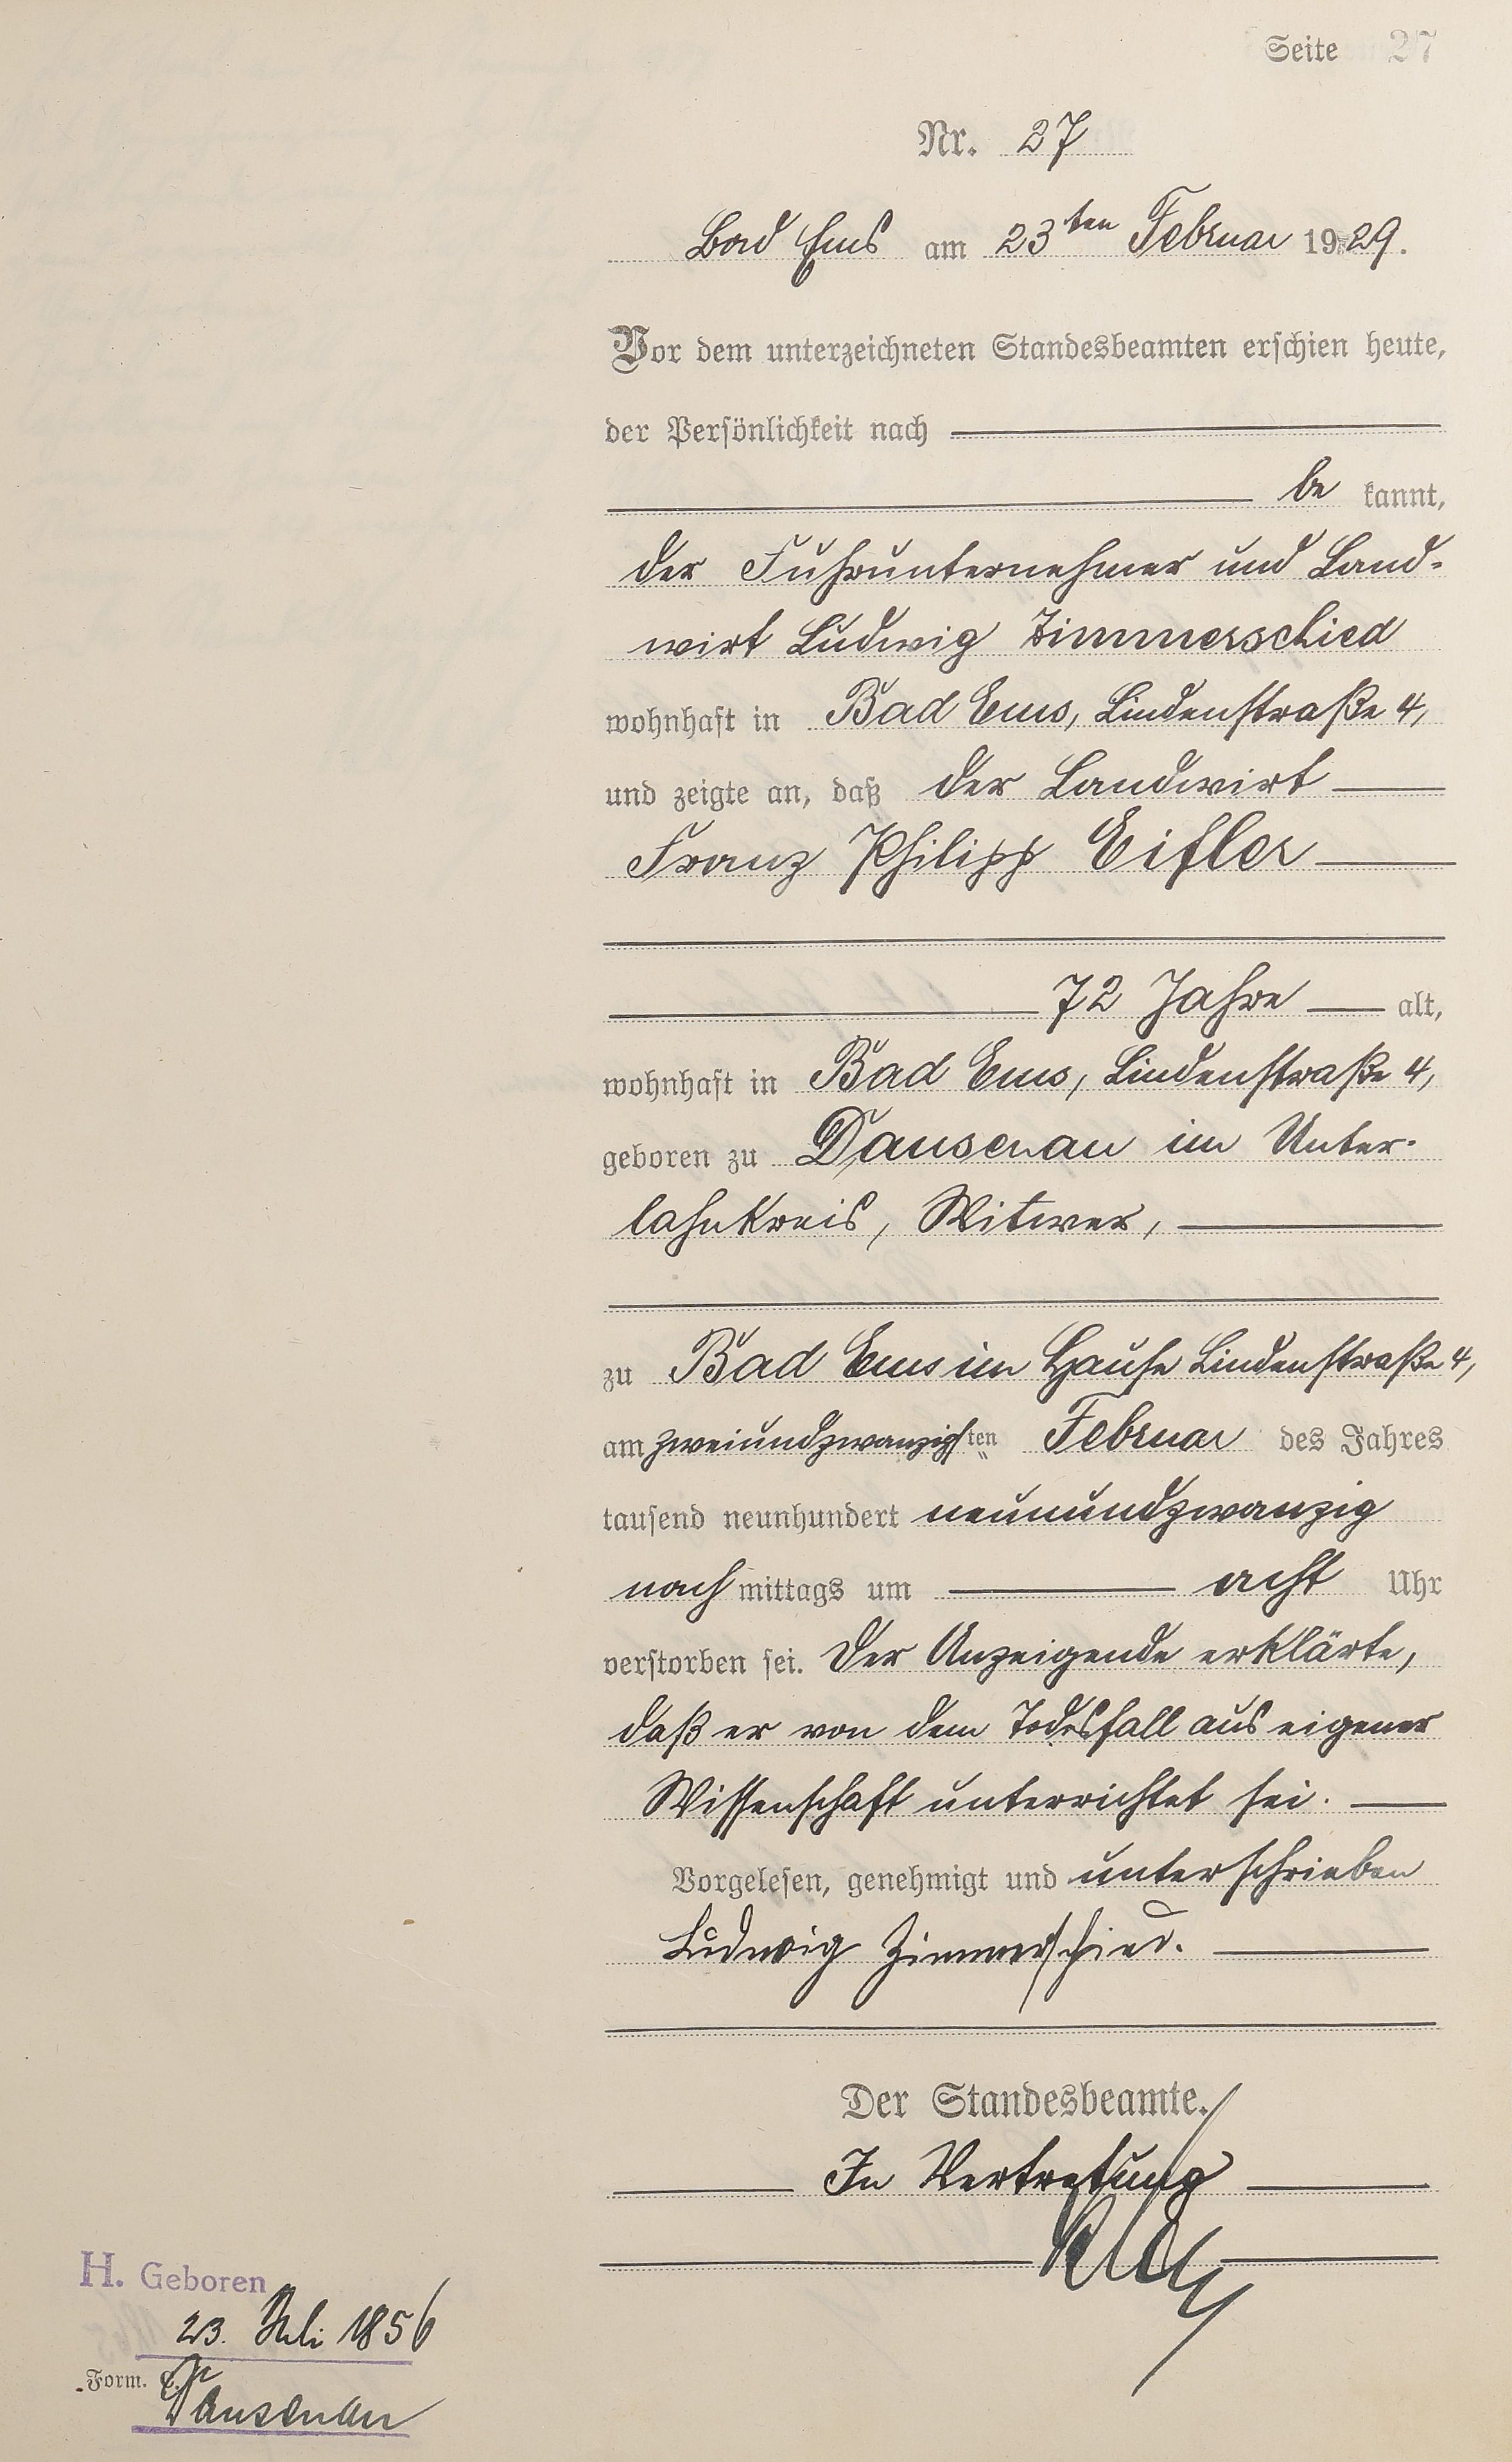 Seite 27
Nr. 27
Bad Ems am 23ten Februar 1929.
Vor dem unterzeichneten Standesbeamten erschien heute,
der Persönlichkeit nach
be kannt,
der Fuhrunternehmer und Land-
wirt Ludwig Zimmerschied
wohnhaft in Bad Ems, Lindenstraße 4,
und zeigte an, daß der Landwirt
Franz Philipp Eifler
72 Jahre alt,
wohnhaft in Bad Ems, Lindenstraße 4,
geboren zu Dausenau im Unter-
lahnkreis, Witwer,
zu Bad Ems im Hause Lindenstraße 4,
am zweiundzwanzigsten Februar des Jahres
tausend neunhundert neunundzwanzig
nach mittags um acht Uhr
verstorben sei. Der Anzeigende erklärte,
daß er von dem Todesfall aus eigener
Wissenschaft unterrichtet sei.
Vorgelesen, genehmigt und unterschrieben
Ludwig Zimmerschied.
Der Standesbeamte.
In Vertretung
H. Geboren
23. Juli 1856
Form.
Dausenau